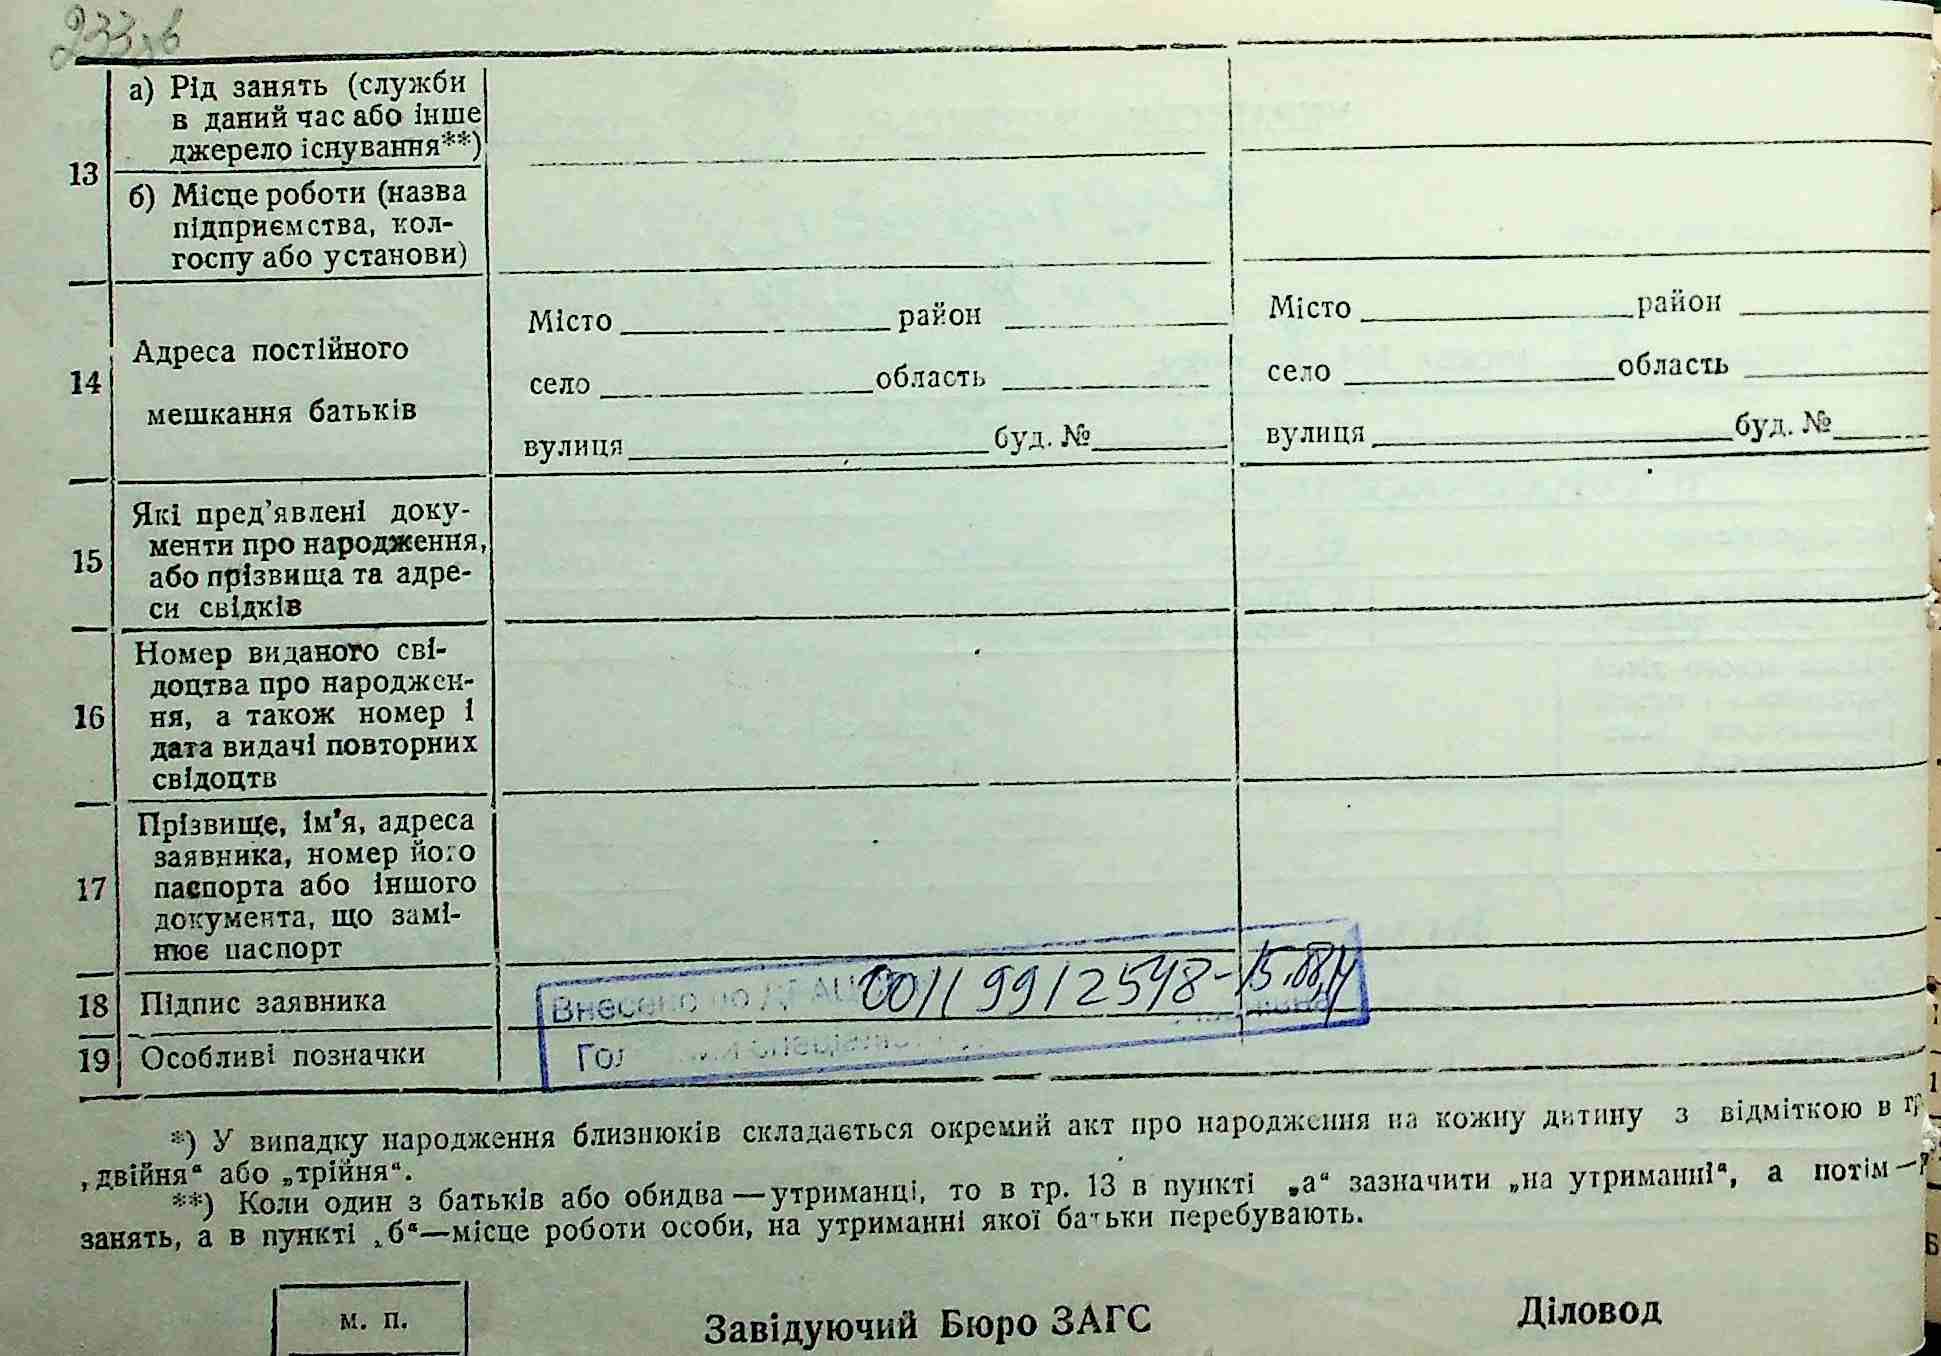 233 зв
13
а) Рід занять (служби
в даний час або інше
джерело існування**)
б) Місце роботи (назва
підприємства, кол-
госпу або установи)
14
Адреса постійного
мешкання батьків
Місто район
село область
вулиця буд. №
Місто район
село область
вулиця буд. №
15
Які пред’явлені доку-
менти про народження,
або прізвища та адре-
си свідків
16
Номер виданого сві-
доцтва про народжен-
ня, а також номер і
дата видачі повторних
свідоцтв
17
Прізвище, ім’я, адреса
заявника, номер його
паспорта або іншого
документа, що замі-
нює паспорт
18 Підпис заявника
Внесено до 00119912548-15.08.14
19 Особливі позначки
*) У випадку народження близнюків складається окремий акт про народження на кожну дитину з відміткою в гр.
„двійня“ або „трійня“.
**) Коли один з батьків або обидва—утриманці, то в гр. 13 в пункті „а“ зазначити „на утриманні“, а потім—
занять, а в пункті „б“—місце роботи особи, на утриманні якої батьки перебувають.
м. п.
Завідуючий Бюро ЗАГС
Діловод